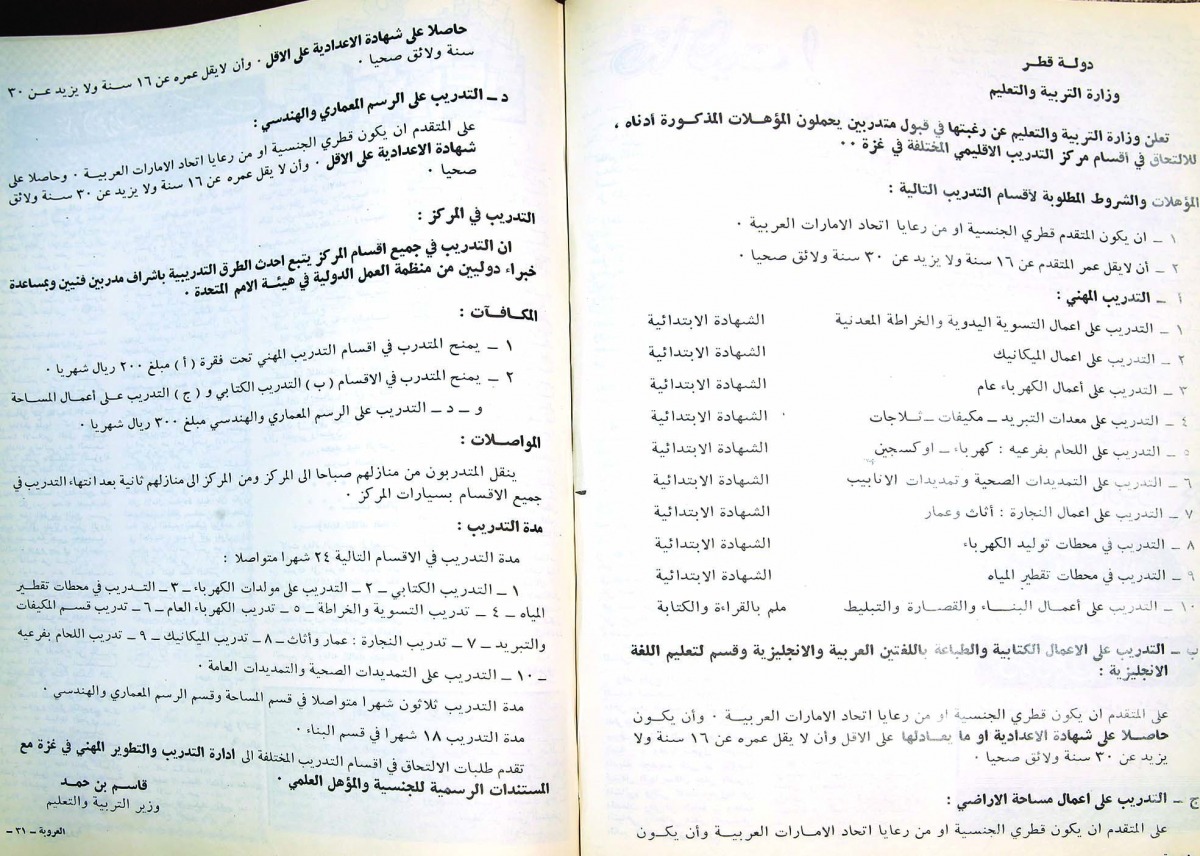 دولة قطر
وزارة التربية والتعليم
تعلن وزارة التربية والتعليم عن رغبتها في قبول متدربين يحملون المؤهلات المذكورة أدناه ،
للالتحاق في أقسام مركز التدريب الاقليمي المختلفة في غزة ٠٠
المؤهلات والشروط المطلوبة لأقسام التدريب التالية :
١ ــ ان يكون المتقدم قطري الجنسية او من رعايا اتحاد الامارات العربية ٠
٢ ــ أن لايقل عمر المتقدم عن ١٦ سنة ولا يزيد عن ٣٠ سنة ولائق صحيا ٠
أ ــ التدريب المهني :
١ ــ التدريب على اعمال التسوية اليدوية والخراطة المعدنية الشهادة الابتدائية
٢ ــ التدريب على اعمال الميكانيك الشهادة الابتدائية
٣ ــ التدريب على أعمال الكهرباء عام الشهادة الابتدائية
٤ ــ التدريب على معدات التبريد ــ مكيفات ــ ثلاجات الشهادة الابتدائية
٥ ــ التدريب على اللحام بفرعيه : كهرباء ــ اوكسجين الشهادة الابتدائية
٦ ــ التدريب على التمديدات الصحية وتمديدات الانابيب الشهادة الابتدائية
٧ ــ التدريب على اعمال النجارة : أثاث وعمار الشهادة الابتدائية
٨ ــ التدريب في محطات توليد الكهرباء الشهادة الابتدائية
٩ ــ التدريب في محطات تقطير المياه الشهادة الابتدائية
١٠ ــ التدريب على أعمال البناء والقصارة والتبليط ملم بالقراءة والكتابة
ب ــ التدريب على الاعمال الكتابية والطباعة باللغتين العربية والانجليزية وقسم لتعليم اللغة
الانجليزية :
على المتقدم ان يكون قطري الجنسية او من رعايا اتحاد الامارات العربية ٠ وأن يكون
حاصلا على شهادة الاعدادية او ما يعادلها على الاقل وأن لا يقل عمره عن ١٦ سنة ولا
يزيد عن ٣٠ سنة ولائق صحيا ٠
ج ــ التدريب على اعمال مساحة الاراضي :
على المتقدم ان يكون قطري الجنسية او من رعايا اتحاد الامارات العربية وأن يكون
حاصلا على شهادة الاعدادية على الاقل ٠ وأن لايقل عمره عن ١٦ سنة ولا يزيد عن ٣٠
سنة ولائق صحيا ٠
د ــ التدريب على الرسم المعماري والهندسي :
على المتقدم ان يكون قطري الجنسية او من رعايا اتحاد الامارات العربية ٠ وحاصلا على
شهادة الاعدادية على الاقل ٠ وأن لا يقل عمره عن ١٦ سنة ولا يزيد عن ٣٠ سنة ولائق
صحيا ٠
التدريب في المركز :
ان التدريب في جميع اقسام المركز يتبع احدث الطرق التدريبية باشراف مدربين فنيين وبمساعدة
خبراء دوليين من منظمة العمل الدولية في هيئة الامم المتحدة ٠
المكافآت :
١ ــ يمنح المتدرب في اقسام التدريب المهني تحت فقرة ( أ ) مبلغ ٢٠٠ ريال شهريا ٠
٢ ــ يمنح المتدرب في الاقسام ( ب ) التدريب الكتابي و ( ج ) التدريب على أعمال المساحة
و ــ د ــ التدريب على الرسم المعماري والهندسي مبلغ ٣٠٠ ريال شهريا ٠
المواصلات :
ينقل المتدربون من منازلهم صباحا الى المركز ومن المركز الى منازلهم ثانية بعد انتهاء التدريب في
جميع الاقسام بسيارات المركز ٠
مدة التدريب :
مدة التدريب في الاقسام التالية ٢٤ شهرا متواصلا :
١ ــ التدريب الكتابي ــ ٢ ــ التدريب على مولدات الكهرباء ــ ٣ ــ التدريب في محطات تقطير
المياه ــ ٤ ــ تدريب التسوية والخراطة ــ ٥ ــ تدريب الكهرباء العام ــ ٦ ــ تدريب قسم المكيفات
والتبريد ــ ٧ ــ تدريب النجارة : عمار وأثاث ــ ٨ ــ تدريب الميكانيك ــ ٩ ــ تدريب اللحام بفرعيه
ــ ١٠ ــ التدريب على التمديدات الصحية والتمديدات العامة ٠
مدة التدريب ثلاثون شهرا متواصلا في قسم المساحة وقسم الرسم المعماري والهندسي ٠
مدة التدريب ١٨ شهرا في قسم البناء ٠
تقدم طلبات الالتحاق في اقسام التدريب المختلفة الى ادارة التدريب والتطوير المهني في غزة مع
المستندات الرسمية للجنسية والمؤهل العلمي ٠
قاسم بن حمد
وزير التربية والتعليم
العروبة ــ ٣١ ــ